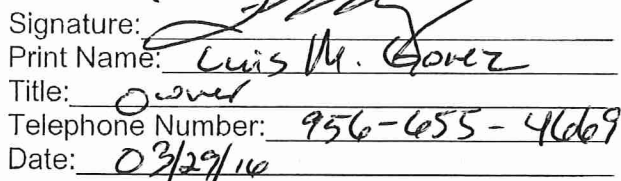 Signature:
Print Name: Luis M. Gomez
Title: Owner
Telephone Number: 956-655-4669
Date: 03/29/16